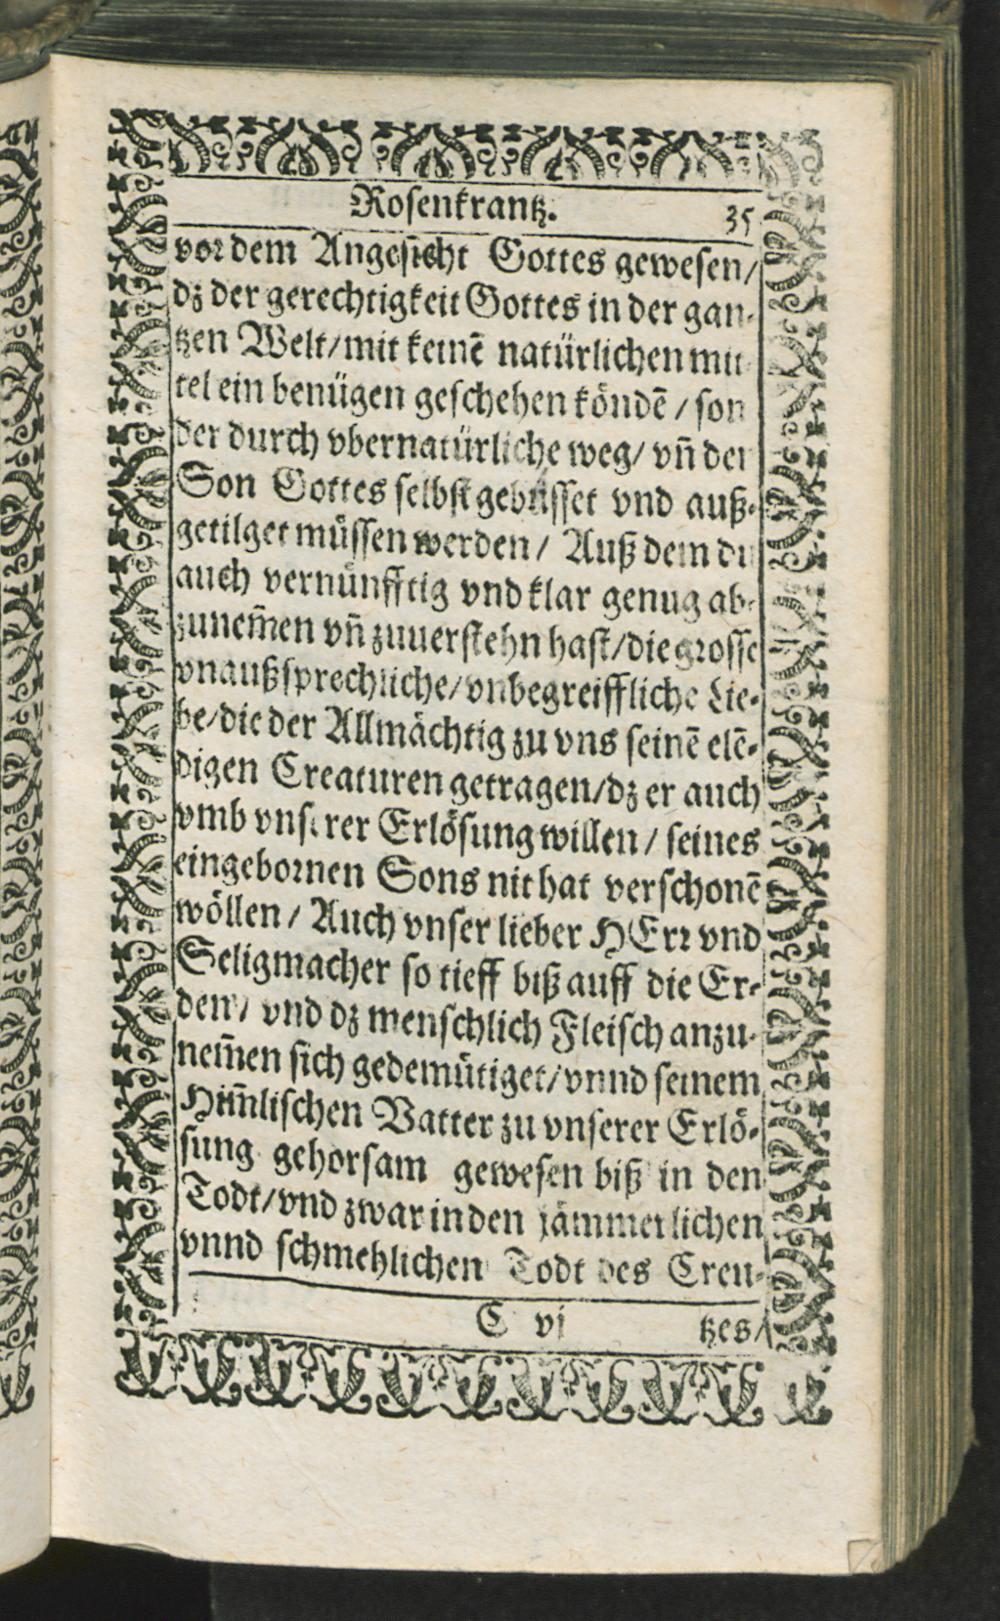 Rosenkrantz. 35
vor dem Angesicht Gottes gewesen/
dz der gerechtigkeit Gottes in der gan-
tzen Welt/ mit keinē natürlichen mit
tel ein benügen geschehen köndē / son
der durch vbernatürliche weg/ vn̄ der
Son Gottes selbst gebüsset vnd auß-
getilget müssen werden / Auß dem du
auch vernünfftig vnd klar genug ab-
zunem̄en vn̄ zuuerstehn hast/ die grosse
vnaußsprechliche/ vnbegreiffliche Lie-
be/ die der Allmächtig zu vns seinē elē-
digen Creaturen getragen/ dz er auch
vmb vnserer Erlösung willen / seines
eingebornen Sons nit hat verschonē
wöllen / Auch vnser lieber HErr vnd
Seligmacher so tieff biß auff die Er-
den/ vnd dz menschlich Fleisch anzu-
nem̄en sich gedemütiget/ vnnd seinem
Him̄lischen Vatter zu vnserer Erlö-
sung gehorsam gewesen biß in den
Todt/ vnd zwar in den jämmerlichen
vnnd schmehlichen Todt des Creu-
C vj tzes/